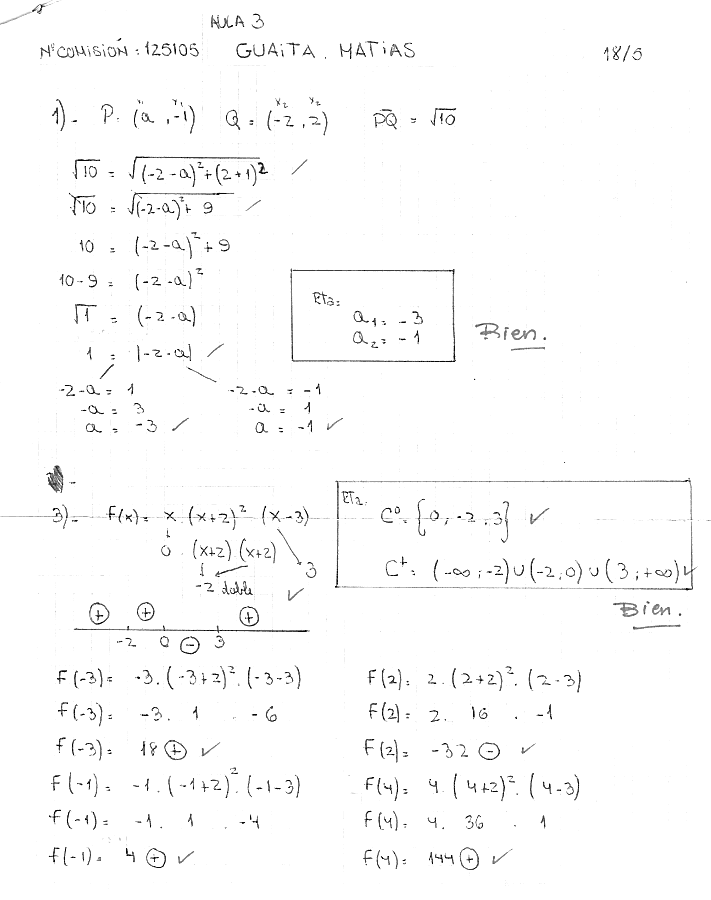 AULA 3
Nº COMISIÓN: 125105 GUAITA, MATIAS 18/5
1)- P. (a, -1) Q = (-2, 2) PQ = √10
x₁ y₁ x₂ y₂
√10 = √(-2-a)²+(2+1)² ✓
√10 = √(-2-a)²+ 9 ✓
10 = (-2-a)²+9
10-9 = (-2-a)²
√1 = (-2-a)
1 = |-2-a| ✓
-2-a = 1 -2-a = -1
-a = 3 -a = 1
a = -3 ✓ a = -1 ✓
Rta:
a₁ = -3
a₂ = -1
Bien.
3)- f(x) = x . (x+2)² (x-3)
0 (x+2) (x+2) 3
-2 doble ✓
+ + - +
-2 0 3
Rta.
C⁰ = {0; -2; 3} ✓
C⁺: (-∞; -2) ∪ (-2; 0) ∪ (3; +∞) ✓
Bien.
f(-3) = -3. (-3+2)². (-3-3)
f(-3) = -3. 1 . -6
f(-3) = 18 + ✓
f(-1) = -1. (-1+2)². (-1-3)
f(-1) = -1. 1 . -4
f(-1) = 4 + ✓
f(2) = 2. (2+2)². (2-3)
f(2) = 2. 16 . -1
f(2) = -32 - ✓
f(4) = 4. (4+2)². (4-3)
f(4) = 4. 36 . 1
f(4) = 144 + ✓